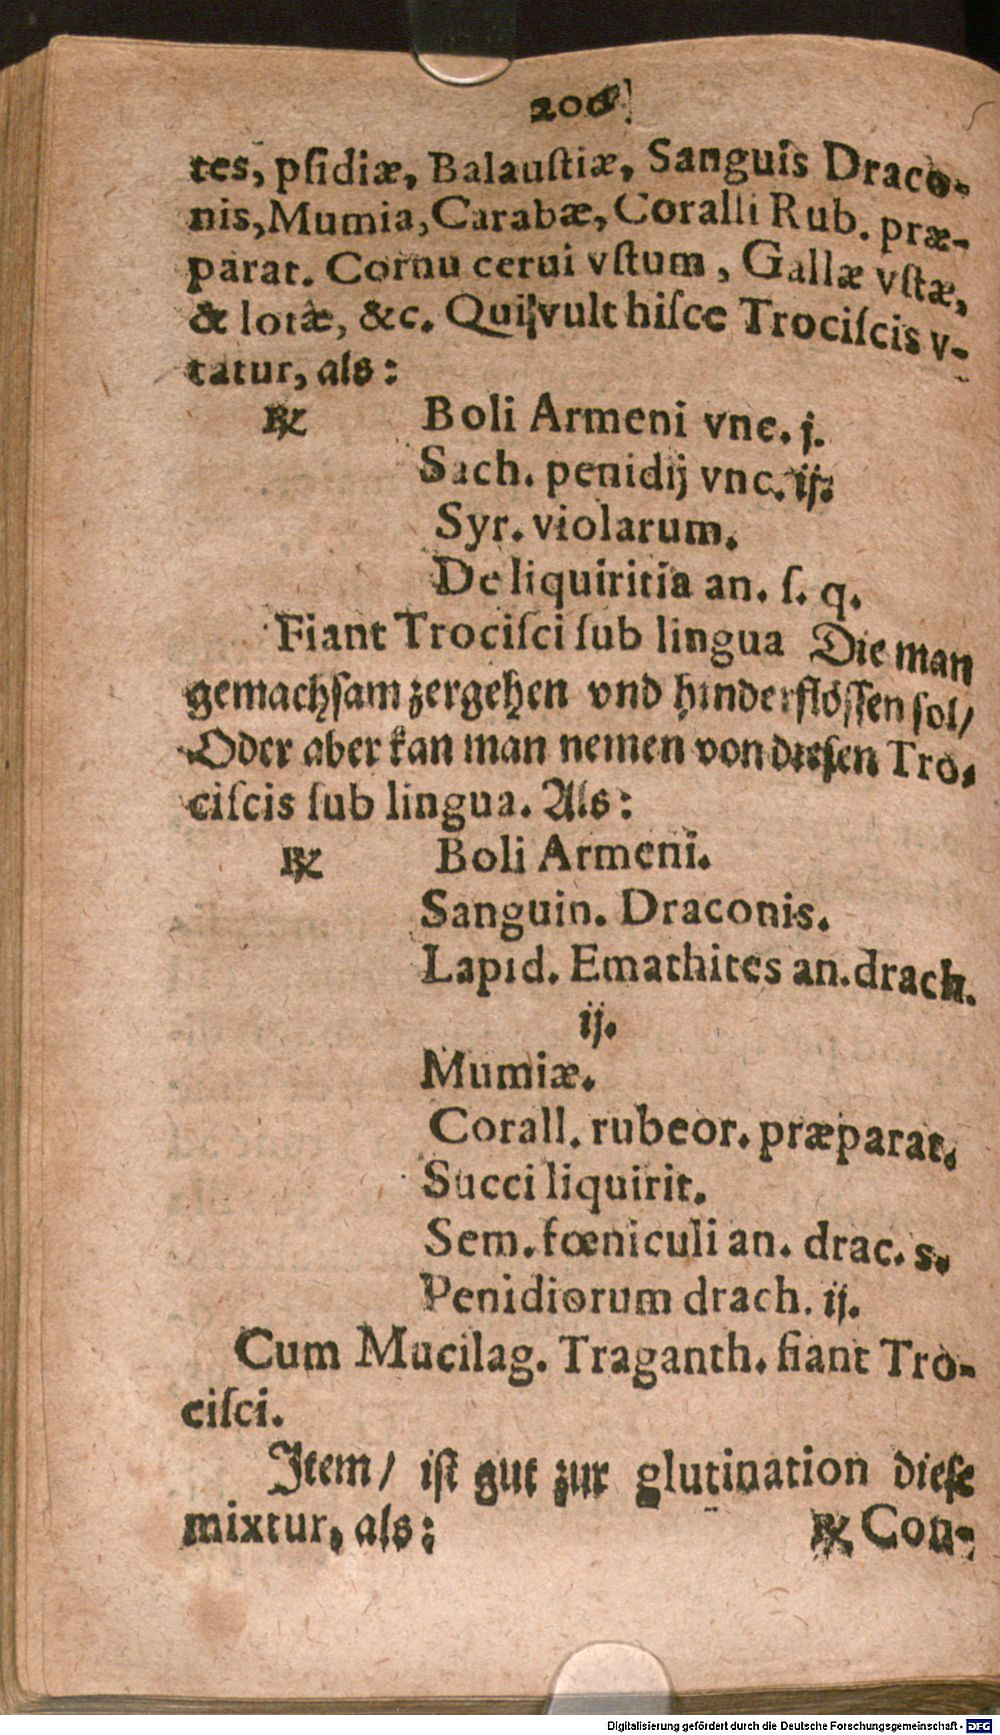 206
tes, psidiæ, Balaustiæ, Sanguis Draco-
nis, Mumia, Carabæ, Coralli Rub. præ-
parat. Cornu cerui vstum, Gallæ vstæ,
& lotæ, &c. Qui vult hisce Trociscis v-
tatur, als:
℞ Boli Armeni vnc. j.
Sach. penidij vnc. ij.
Syr. violarum.
De liquiritia an. s. q.
Fiant Trocisci sub lingua Die man
gemachsam zergehen vnd hinderflössen sol/
Oder aber kan man nemen von diesen Tro-
ciscis sub lingua. Als:
℞ Boli Armeni.
Sanguin. Draconis.
Lapid. Emathites an. drach.
ij.
Mumiæ.
Corall. rubeor. præparat.
Succi liquirit.
Sem. fœniculi an. drac. s.
Penidiorum drach. ij.
Cum Mucilag. Traganth. fiant Tro-
cisci.
Item/ ist gut zur glutination diese
mixtur, als:
℞ Con-
Digitalisierung gefördert durch die Deutsche Forschungsgemeinschaft - DFG